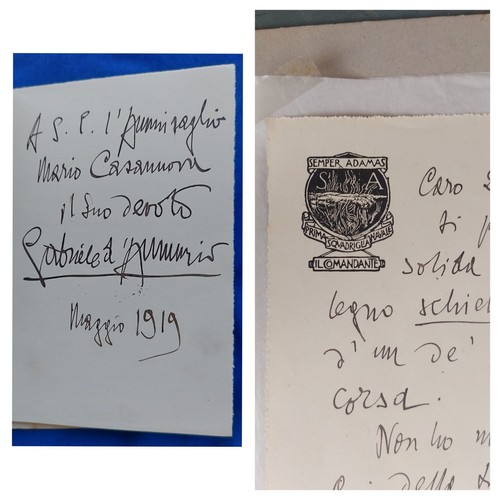 A S. E. l'Ammiraglio
Mario Casanuova
il Suo devoto
Gabriele d'Annunzio
Maggio 1919
SEMPER ADAMAS
S A
PRIMA SQUADRIGLIA NAVALE
IL COMANDANTE
Caro
ti
solida
legno
d'un de'
corsa.
Non ho
della